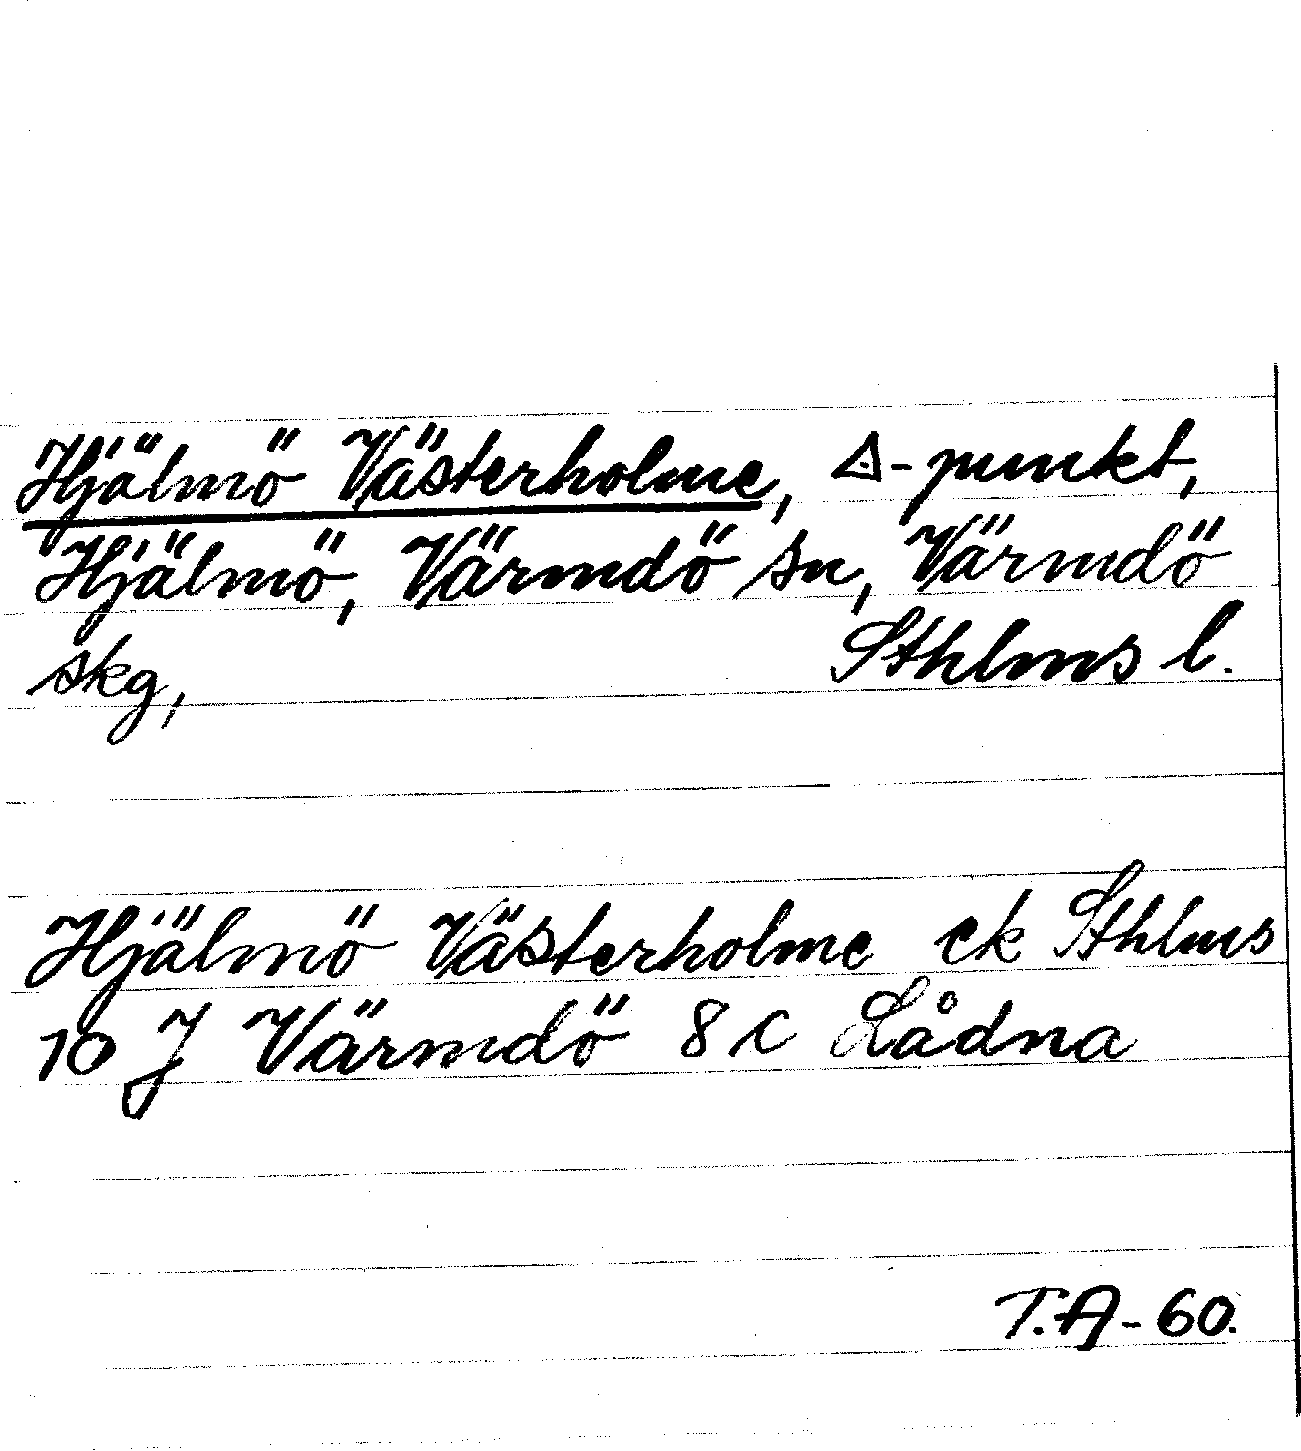 Hjälmö Västerholme, △-punkt,
Hjälmö, Värmdö sn, Värmdö
skg, Sthlms l.
Hjälmö Västerholme ek Sthlms
10 J Värmdö 8 c Lådna
T.A-60.